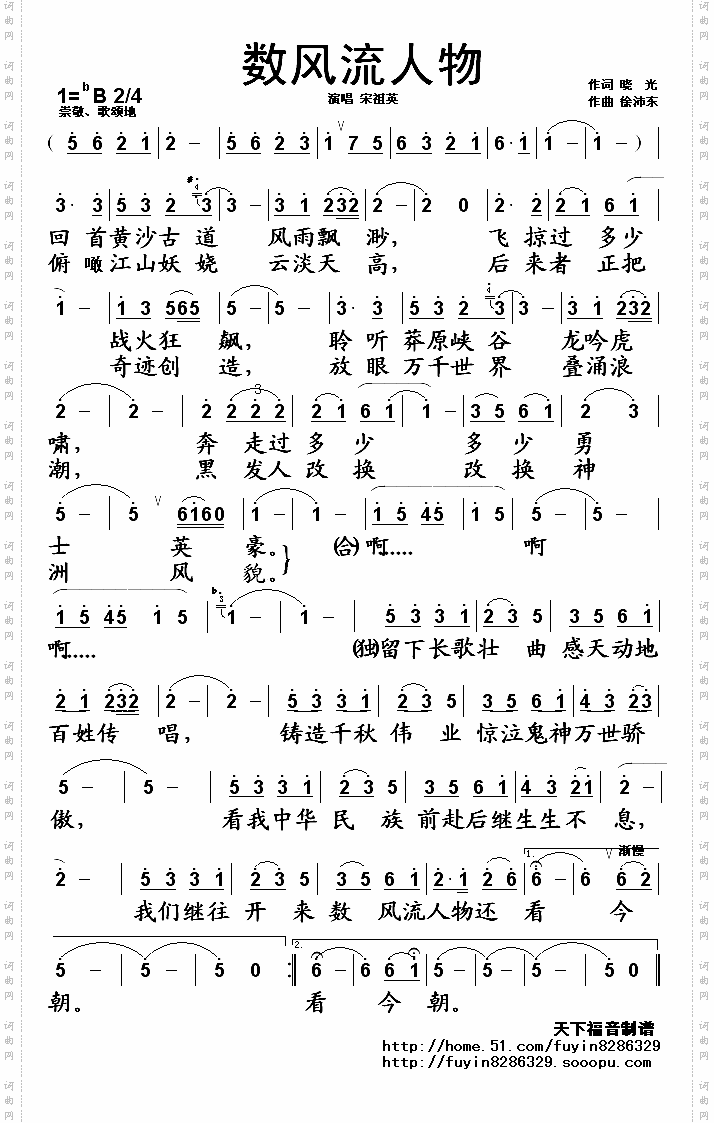 数风流人物
1=ᵇB 2/4
崇敬、歌颂地
演唱 宋祖英
作词 晓 光
作曲 徐沛东
( 5 6 2 1 | 2 - | 5 6 2 3 | 1 7 5 | 6 3 2 1 | 6· 1 | 1 - | 1 - )
3· 3 | 5 3 2 3 | 3 - | 3 1 232 | 2 - | 2 0 | 2· 2 | 2 1 6 1 |
回 首 黄 沙 古 道 风 雨 飘 渺, 飞 掠 过 多 少
俯 瞰 江 山 妖 娆 云 淡 天 高, 后 来 者 正 把
1 - | 1 3 565 | 5 - | 5 - | 3· 3 | 5 3 2 3 | 3 - | 3 1 232 |
战 火 狂 飙, 聆 听 莽 原 峡 谷 龙 吟 虎
奇 迹 创 造, 放 眼 万 千 世 界 叠 涌 浪
2 - | 2 - | 2 2 2 2 | 2 1 6 1 | 1 - | 3 5 6 1 | 2 3 |
啸, 奔 走 过 多 少 多 少 勇
潮, 黑 发 人 改 换 改 换 神
5 - | 5 6160 | 1 - | 1 - | 1 5 45 | 1 5 | 5 - | 5 - |
士 英 豪。 (合)啊.... 啊
洲 风 貌。
1 5 45 1 5 | 1 - | 1 - | 5 3 3 1 | 2 3 5 | 3 5 6 1 |
啊.... (独)留 下 长 歌 壮 曲 感 天 动 地
2 1 232 | 2 - | 2 - | 5 3 3 1 | 2 3 5 | 3 5 6 1 | 4 3 23 |
百 姓 传 唱, 铸 造 千 秋 伟 业 惊 泣 鬼 神 万 世 骄
5 - | 5 - | 5 3 3 1 | 2 3 5 | 3 5 6 1 | 4 3 21 | 2 - |
傲, 看 我 中 华 民 族 前 赴 后 继 生 生 不 息,
渐慢
2 - | 5 3 3 1 | 2 3 5 | 3 5 6 1 | 2· 1 2 6 | 1. 6 - | 6 6 2 |
我 们 继 往 开 来 数 风 流 人 物 还 看 今
5 - | 5 - | 5 0 :| 2. 6 - | 6 6 1 | 5 - | 5 - | 5 0 ‖
朝。 看 今 朝。
天下福音制谱
http://home.51.com/fuyin8286329
http://fuyin8286329.sooopu.com
词曲网